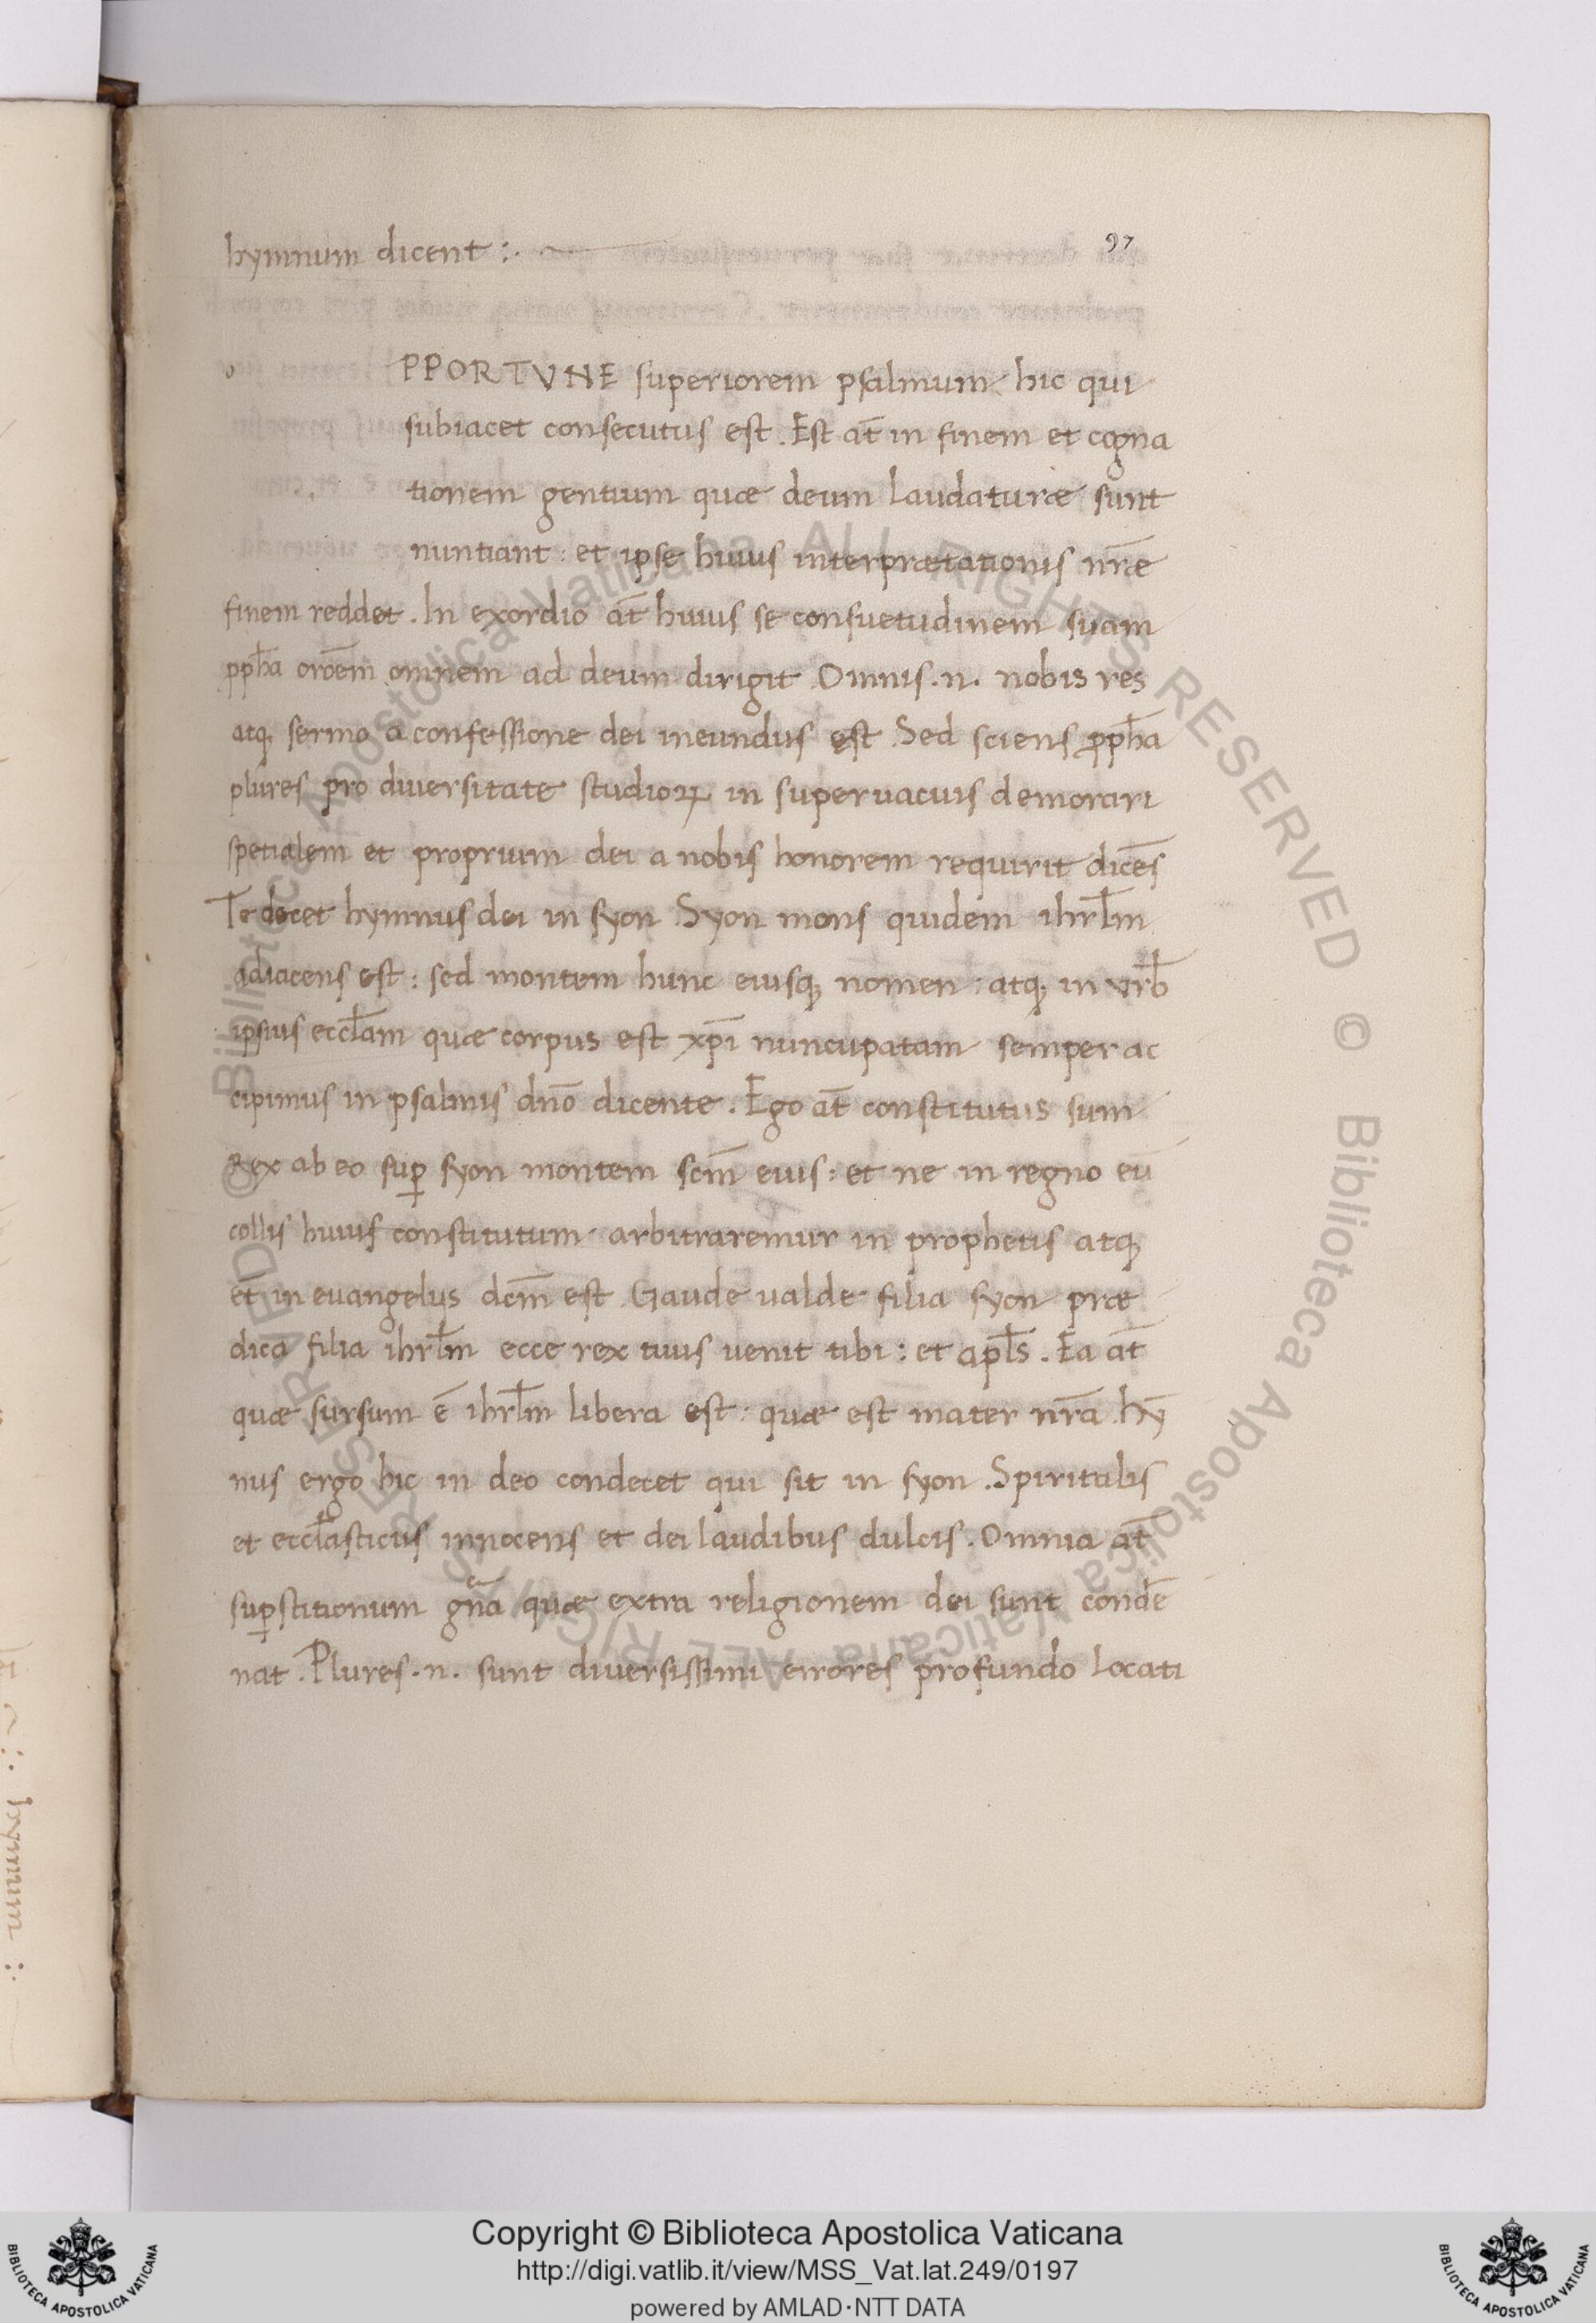 97
hymnum dicent :.
o PPORTVNE superiorem psalmum hic qui
subiacet consecutus est . Est at̄ in finem et cogna
tionem gentium quae deum laudaturae sunt
nuntiant : et ipse huius interpraetationis nr̄ae
finem reddet . In exordio at̄ huius se consuetudinem suam
ꝓph̄a oroēm omnem ad deum dirigit . Omnis .n. nobis res
atq; sermo a confessione dei ineundus est . Sed sciens ꝓph̄a
plures pro diuersitate studioꝝ in superuacuis demorari
spetialem et proprium dei a nobis honorem requirit dicēs
Te decet hymnus dei in syon . Syon mons quidem ihrl̄m
adiacens est : sed montem hunc eiusq; nomen : atq; in vrb̄
ipsius eccl̄am quae corpus est xp̄i nuncupatam semper ac
cipimus in psalmis dn̄o dicente . Ego at̄ constitutus sum
Rex ab eo suꝑ syon montem scm̄ eius : et ne in regno eū
collis huius constitutum arbitraremur in prophetis atq;
et̄ in euangeliis dcm̄ est . Gaude ualde filia syon prae
dica filia ihrl̄m ecce rex tuus uenit tibi : et apl̄s . Ea at̄
quae sursum ē ihrl̄m libera est : quae est mater nr̄a . hȳ
nus ergo hic in deo condecet qui sit in syon . Spiritalis
et eccl̄asticus innocens et dei laudibus dulcis . Omnia at̄
suꝑstitionum gn̄a quae extra religionem dei sunt condē
nat . Plures .n. sunt diuersissimi errores profundo locati
Copyright © Biblioteca Apostolica Vaticana
http://digi.vatlib.it/view/MSS_Vat.lat.249/0197
powered by AMLAD·NTT DATA
BIBLIOTECA APOSTOLICA VATICANA
BIBLIOTECA APOSTOLICA VATICANA
Biblioteca Apostolica Vaticana ALL RIGHTS RESERVED © Biblioteca Apostolica Vaticana ALL RIGHTS RESERVED ©